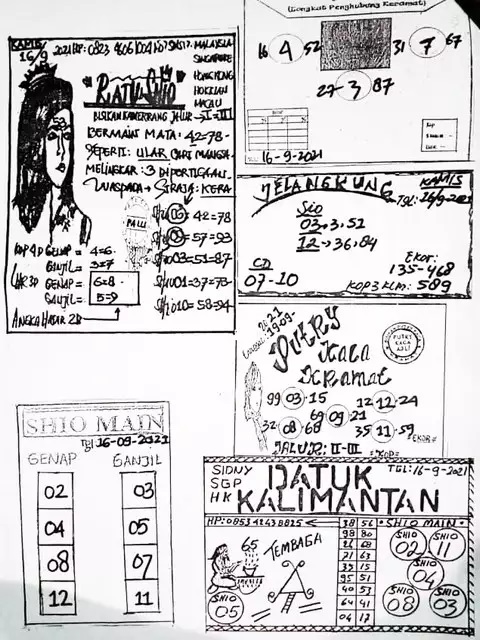 KAMIS
16/9
2021 HP: 0823
MALAYSIA
SINGAPORE
HONGKONG
HOKKIAN
MACAU
RATU SHIO
53
JALUR = II=III
BERMAIN MATA: 42=78-
SEPERTI: ULAR CARI MANGSA
MELINGKAR: 3 DIPERTIGAAN
WASPADA → SRAJA: KERA
PALU
42=78
57=93
SHIO 03=51=87
SHIO 01=37=73
SHIO 10=58=94
KOP 4D GENAP = 4=6
GANJIL = 3=7
GENAP = 6=8
GANJIL = 5=9
ANGKA HADIR 2D
(Tongkat Penghubung Keramat)
16 4 52
31 7 67
27 3 87
Kop
16-9-2021
JELANGKUNG
KAMIS
TGL: 16/9-2021
Sio
03, 3, 51
12, 36, 84
CD
07-10
Ekor:
135-468
KOP3 KLM: 589
2021
PUTRY
Kaca
Keramat
PUTRY
KACA
ASLI
99 03 15
12 12 24
69 09 21
32 08 68
35 11 59
JALUR: II-III
EKOR=
KOP=
SHIO MAIN
Tgl 16-09-2021
GENAP GANJIL
02 03
04 05
08 07
12 11
SIDNY
SGP
HK
DATUK
KALIMANTAN
TGL: 16-9-2021
HP: 085342438825
65
TEMBAGA
SHIO
05
38 56
98 80
26 68
71 63
35 15
95 51
40 53
64 41
04 17
SHIO MAIN
SHIO
02
SHIO
11
SHIO
04
SHIO
08
SHIO
03